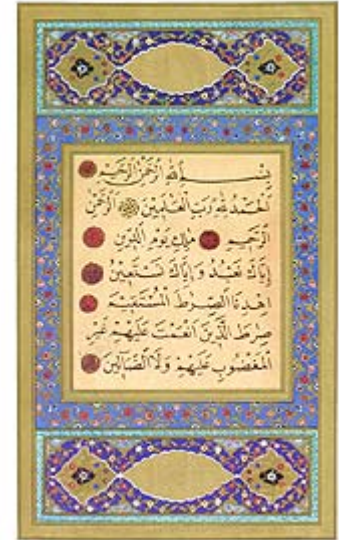 بِسْمِ اللهِ الرَّحْمٰنِ الرَّحِيمِ
اَلْحَمْدُ لِلّٰهِ رَبِّ الْعٰلَمِينَ الرَّحْمٰنِ
الرَّحِيمِ مٰلِكِ يَوْمِ الدِّينِ
إِيَّاكَ نَعْبُدُ وَإِيَّاكَ نَسْتَعِينُ
اِهْدِنَا الصِّرَاطَ الْمُسْتَقِيمَ
صِرَاطَ الَّذِينَ اَنْعَمْتَ عَلَيْهِمْ غَيْرِ
الْمَغْضُوبِ عَلَيْهِمْ وَلَا الضَّالِّينَ